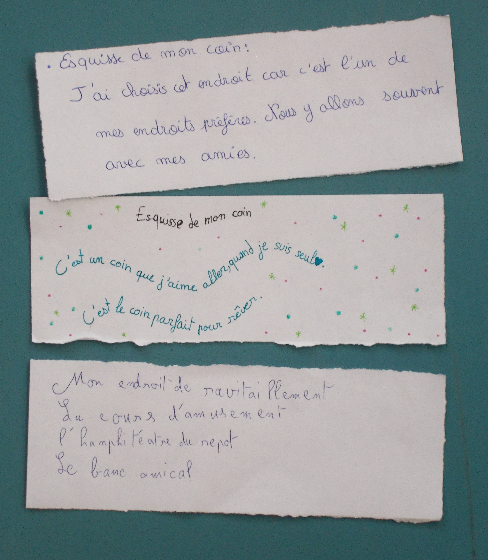 . Esquisse de mon coin:
J'ai choisis cet endroit car c'est l'un de
mes endroits préférés. Nous y allons souvent
avec mes amies.
Esquisse de mon coin
C'est un coin que j'aime aller, quand je suis seul
C'est le coin parfait pour rêver.
Mon endroit de ravitaillement
Lu cours d'amusement
l'hamphitéatre du repot
Le banc amical